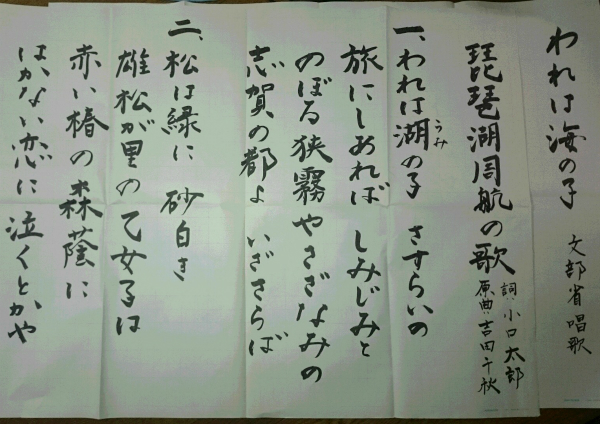 われは海の子 文部省唱歌
琵琶湖周航の歌 詞:小口太郎
原曲:吉田千秋
一、われは湖の子 さすらいの
うみ
旅にしあれば しみじみと
のぼる狭霧や さざなみの
志賀の都よ いざさらば
二、松は緑に 砂白き
雄松が里の 乙女子は
赤い椿の 森蔭に
はかない恋に 泣くとかや